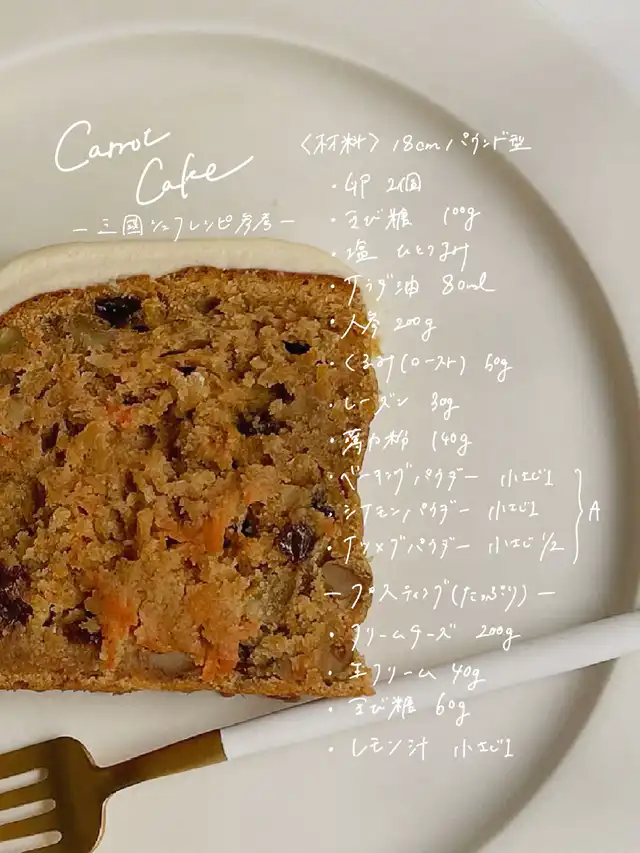 Carrot
Cake
ー三國シェフレシピ参考ー
〈材料〉18cmパウンド型
・卵 2個
・きび糖 100g
・塩 ひとつまみ
・サラダ油 80ml
・人参 200g
・くるみ(ロースト) 50g
・レーズン 30g
・薄力粉 140g
・ベーキングパウダー 小さじ1
シナモンパウダー 小さじ1
・ナツメグパウダー 小さじ1/2
A
ーフロスティング(たっぷり)ー
・クリームチーズ 200g
・生クリーム 40g
・きび糖 60g
・レモン汁 小さじ1